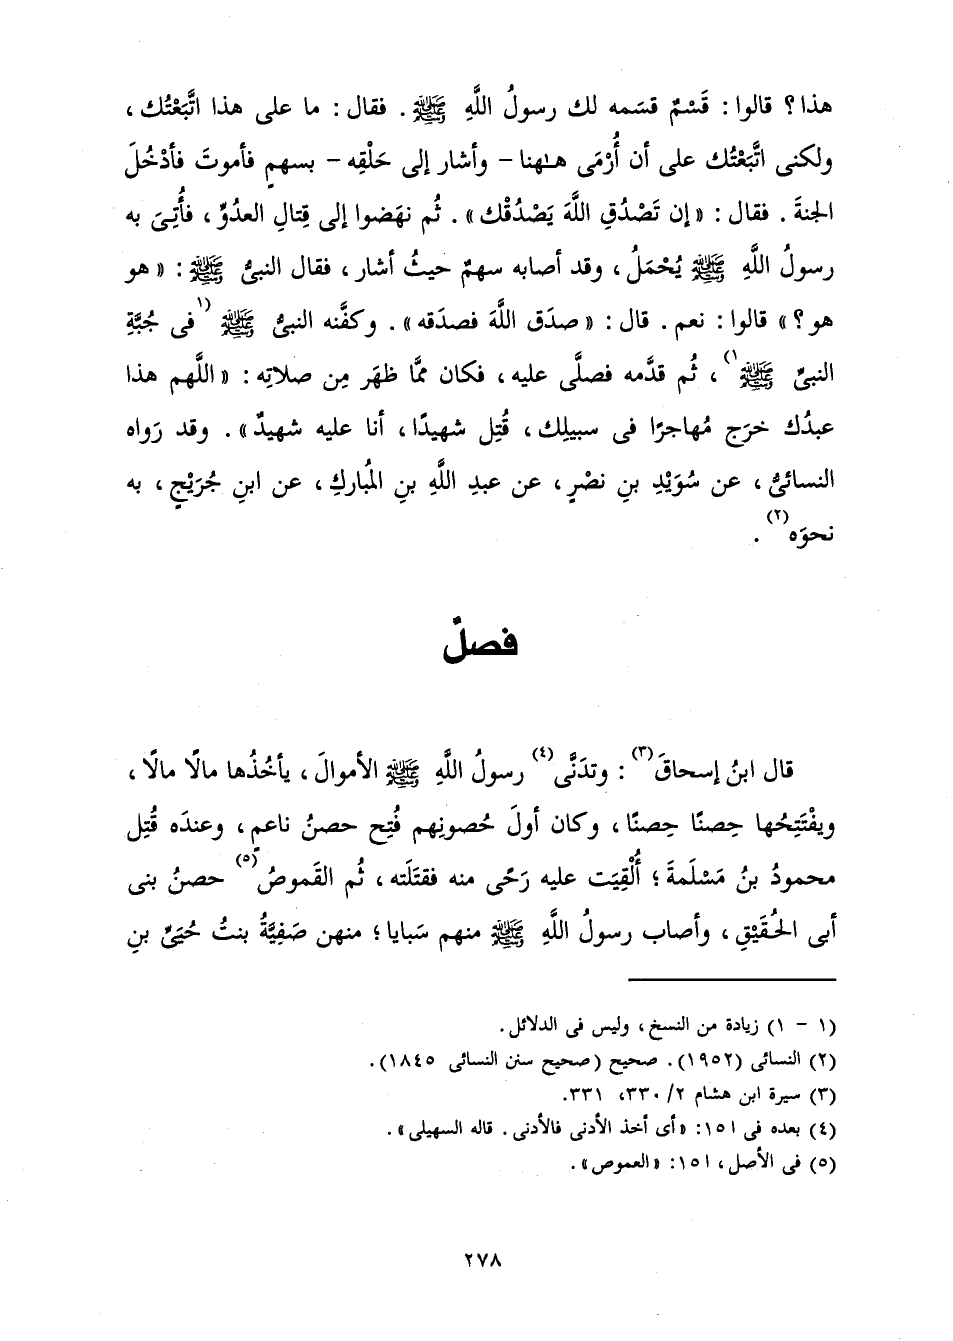 هذا؟ قالوا: قَسْمٌ قسَمه لك رسولُ اللَّهِ ﷺ. فقال: ما على هذا اتَّبَعْتُك،
ولكنى اتَّبَعْتُك على أن أُرْمَى هٰهنا - وأشار إلى حَلْقِه - بسهمٍ فأموتَ فأدْخُلَ
الجنةَ. فقال: «إن تَصْدُقِ اللَّهَ يَصْدُقْك». ثُم نهَضوا إلى قِتالِ العدُوِّ، فأُتِىَ به
رسولُ اللَّهِ ﷺ يُحْمَلُ، وقد أصابه سهمٌ حيثُ أشار، فقال النبىُّ ﷺ: «هو
هو؟» قالوا: نعم. قال: «صدَق اللَّهَ فصدَقه». وكفَّنه النبىُّ ﷺ (١فى جُبَّةِ
النبىِّ ﷺ١)، ثُم قدَّمه فصلَّى عليه، فكان ممَّا ظهَر مِن صلاتِه: «اللَّهم هذا
عبدُك خرَج مُهاجرًا فى سبيلِك، قُتِل شهيدًا، أنا عليه شهيدٌ». وقد رَواه
النسائىُّ، عن سُوَيْدِ بنِ نصْرٍ، عن عبدِ اللَّهِ بنِ المُباركِ، عن ابنِ جُرَيْجٍ، به
نحوَه(٢).
فصلٌ
قال ابنُ إسحاقَ(٣): وتدَنَّى(٤) رسولُ اللَّهِ ﷺ الأموالَ، يأخُذُها مالًا مالًا،
ويفْتَتِحُها حِصنًا حِصنًا، وكان أولَ حُصونِهم فُتِح حصنُ ناعمٍ، وعندَه قُتِل
محمودُ بنُ مَسْلَمةَ؛ أُلْقِيَت عليه رَحًى منه فقتَلَته، ثُم القَموصُ(٥) حصنُ بنى
أبى الحُقَيْقِ، وأصاب رسولُ اللَّهِ ﷺ منهم سَبايا؛ منهن صَفِيَّةُ بنتُ حُيَىِّ بنِ
(١ - ١) زيادة من النسخ، وليس فى الدلائل.
(٢) النسائى (١٩٥٢). صحيح (صحيح سنن النسائى ١٨٤٥).
(٣) سيرة ابن هشام ٢/ ٣٣٠، ٣٣١.
(٤) بعده فى ا ١٥: «أى أخذ الأدنى فالأدنى. قاله السهيلى».
(٥) فى الأصل، ا ١٥: «العموص».
٢٧٨